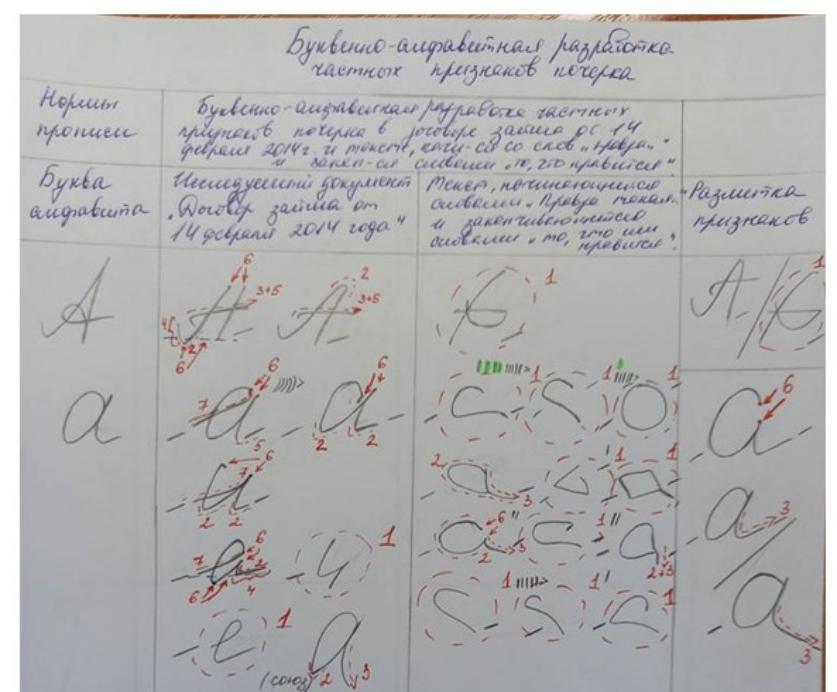 Буквенно-алфавитная разработка
частных признаков почерка
Нормы
прописи
Буквенно-алфавитная разработка частных
признаков почерка в договоре займа от 14
февраля 2014 г. и тексте, нач-ся со слов „Правда..."
и закан-ся словами „то, что нравится".
Буква
алфавита
Исследуемый документ
„Договор займа от
14 февраля 2014 года"
Текст, начинающийся
словами „Правда такая..
и заканчивающийся
словами „то, что им
нравится".
Разметка
признаков
А
6
2
3+5
3+5
4
2
6
1
А / 1
а
6
7
5
6
2
2
1
1
1
6
6
7
2
2
2
3
1
1
3
7
6
2
4
6
1
6
2
3
1
2
3
1
(союз)
2
3
1
1
1
3